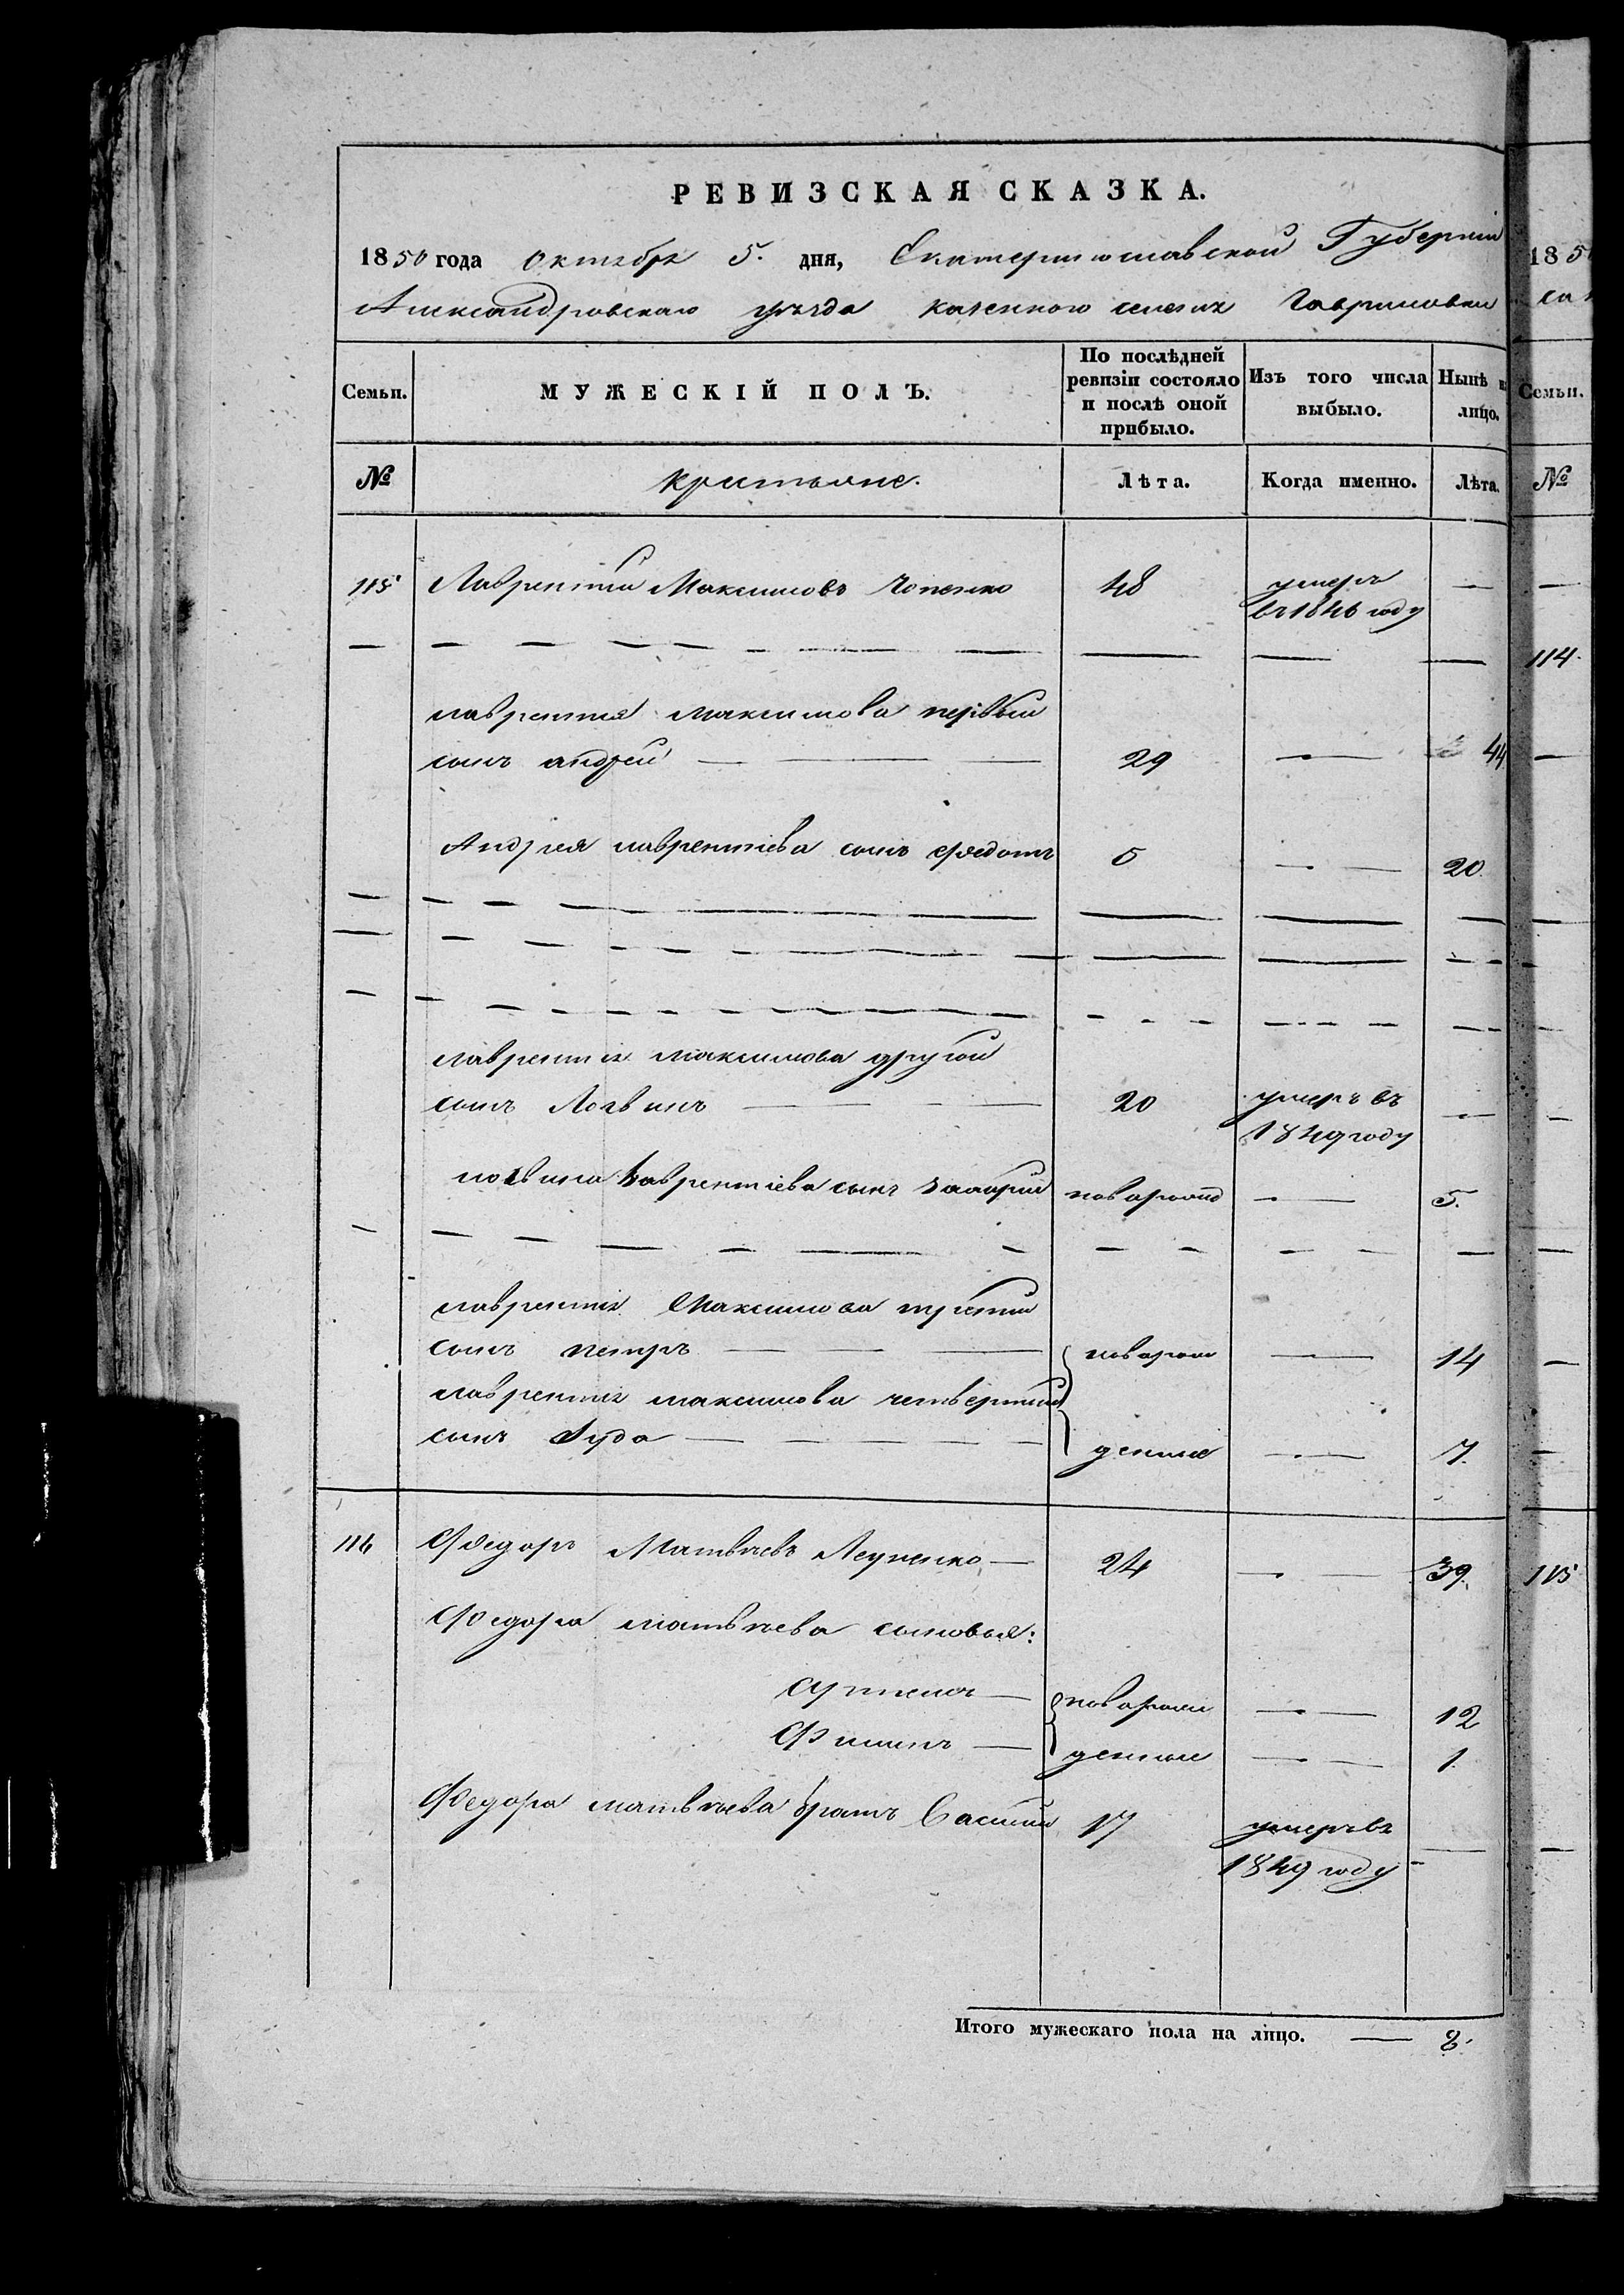 РЕВИЗСКАЯ СКАЗКА.
1850 года октября 5. дня, Екатеринославской Губерніи
Александровскаго уѣзда казеннаго селенія Гавриловки
Семьи. МУЖЕСКІЙ ПОЛЪ. По послѣдней ревизіи состояло и послѣ оной прибыло. Изъ того числа выбыло. Нынѣ на лицо.
№ крестьяне. Лѣта. Когда именно. Лѣта.
115 Лаврентій Максимовъ 48 умеръ
въ 1846 году
лаврентія максимова первый
сынъ андрей 29 — 44
Андрея лаврентіева сынъ Федотъ 5 — 20
лаврентія максимова другой
сынъ Логвинъ 20 умеръ въ —
1849 году
логвина Лаврентіева сынъ захарій новорожд — 5.
лаврентія Максимова третій
сынъ петръ — новорож — 14
лаврентія максимова четвертый
сынъ Іуда — денные — 7.
116 Федоръ Матвѣевъ 24 — 39.
Федора матвѣева сыновья:
Артемъ — новорож — 12
Филипъ — денные — 1
Федора матвѣева братъ Василій 17 умеръ въ —
1849 году
Итого мужескаго пола на лицо. — 8.
1850
Семьи.
№
114.
115